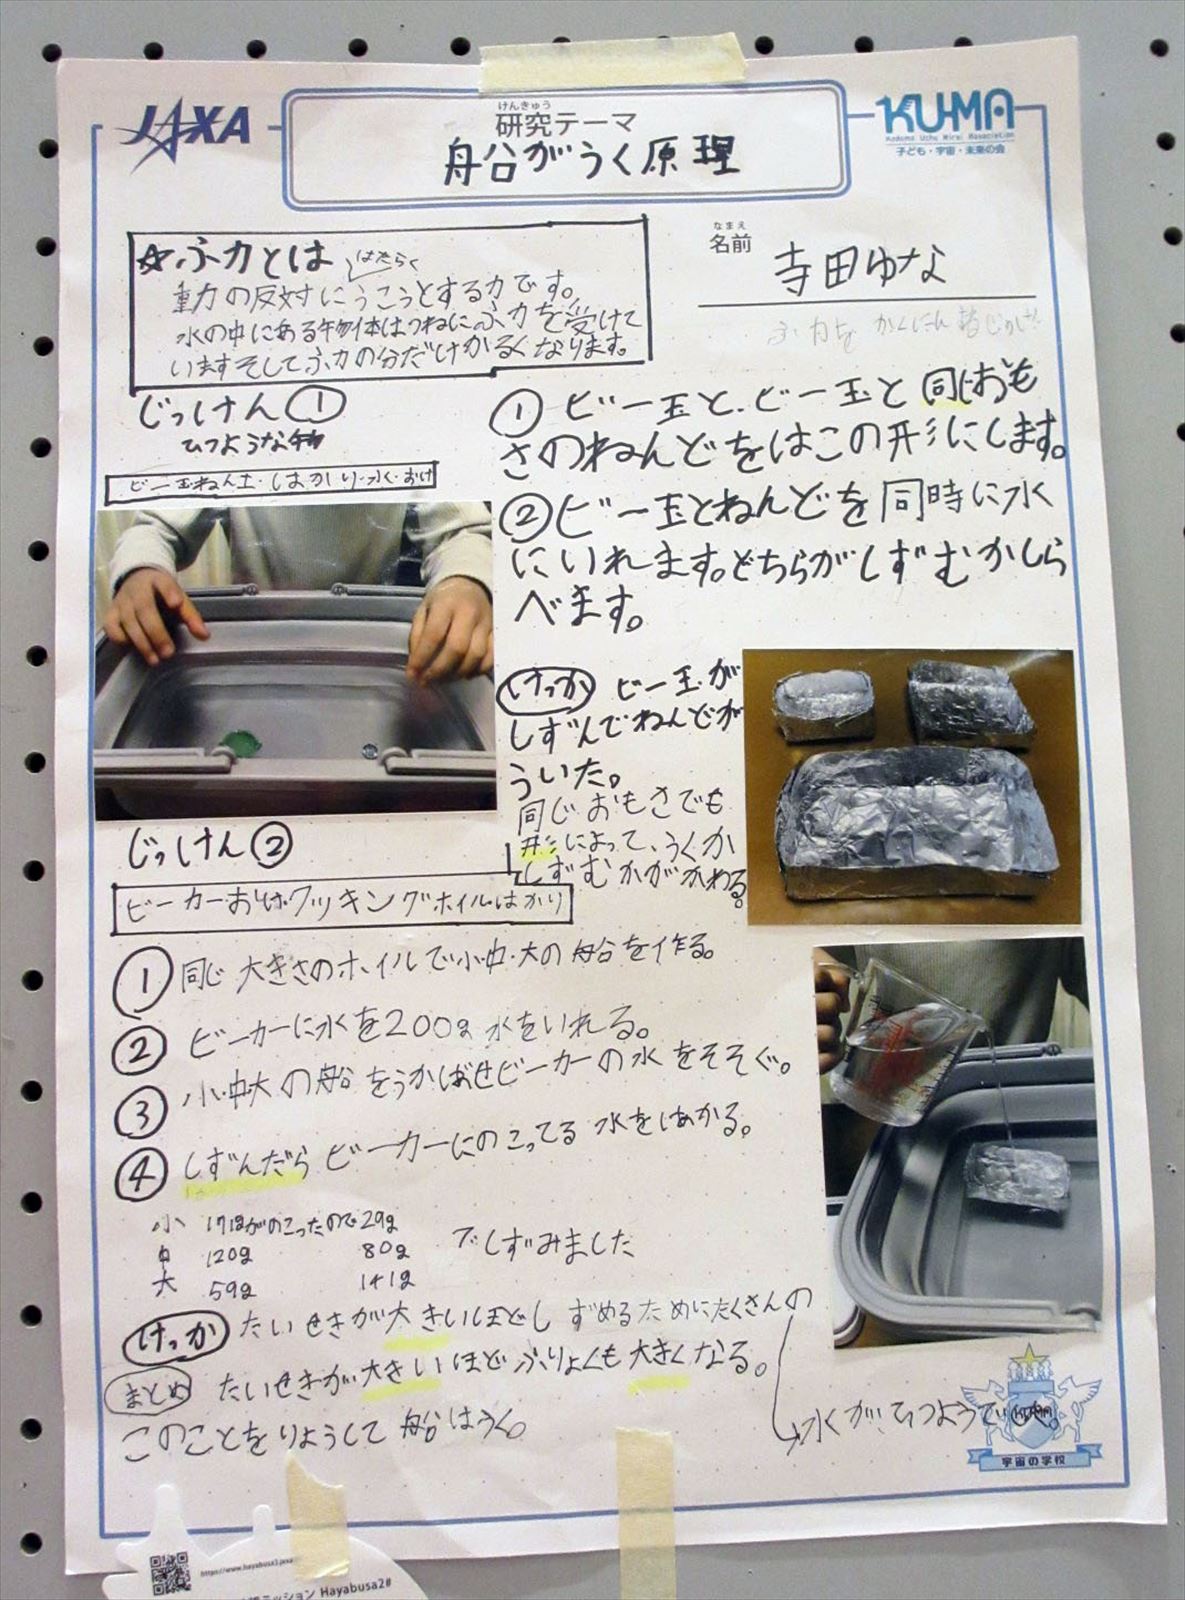 JAXA
けんきゅう
研究テーマ
船がうく原理
KU-MA
Kodomo Uchu Mirai Association
子ども・宇宙・未来の会
なまえ
名前
寺田ゆな
☆ふ力とは
はたらく
重力の反対にうこうとする力です。
水の中にある物体はつねにふ力を受けて
いますそしてふ力の分だけかるくなります。
じっけん①
ひつような物
ビー玉ねん土・はかり・水・おけ
① ビー玉と、ビー玉と同じおも
さのねんどをはこの形にします。
②ビー玉とねんどを同時に水
にいれます。どちらがしずむかしら
べます。
けっか ビー玉が
しずんでねんどが
ういた。
同じおもさでも
形によって、うくか
しずむかがかわる。
じっけん②
ビーカーおけクッキングホイルはかり
① 同じ大きさのホイルで小・中・大の船を作る。
② ビーカーに水を200g水をいれる。
③ 小・中大の船をうかばせビーカーの水をそそぐ。
④ しずんだらビーカーにのこってる水をはかる。
小 171gがのこったので29g
中 120g 80g でしずみました
大 59g 141g
けっか たいせきが大きいほどしずめるためにたくさんの
水がひつようで
まとめ たいせきが大きいほどふりょくも大きくなる。
このことをりようして船はうく。
KU-MA
宇宙の学校
https://www.hayabusa2.jaxa
ミッション Hayabusa2#